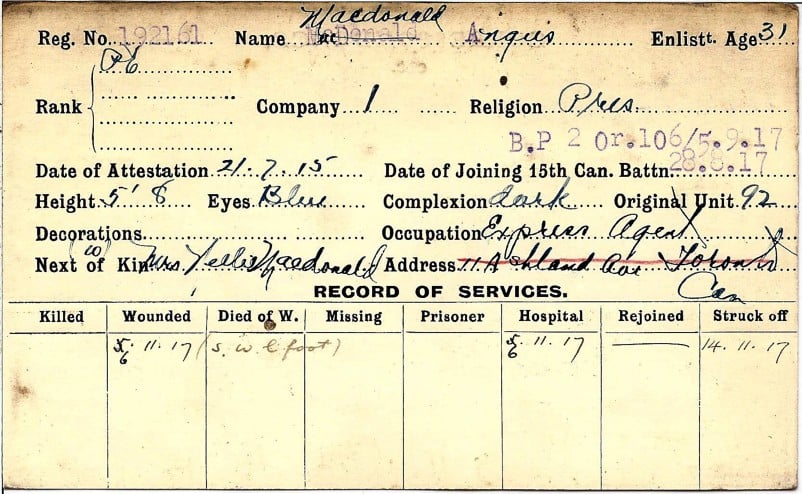 Macdonald
Reg. No. 192161 Name McDonald Angus Enlistt. Age 31
Pte
Rank Company 1 Religion Pres.
B.P 2 Or.106/5.9.17
28.8.17
Date of Attestation 21.7.15 Date of Joining 15th Can. Battn.
Height 5' 8 Eyes Blue Complexion dark Original Unit 92
Decorations Occupation Express Agent
Next of Kin (W) Mrs Nellie Macdonald Address 11 Ashland Ave Toronto
Can
RECORD OF SERVICES.
Killed Wounded Died of W. Missing Prisoner Hospital Rejoined Struck off
5/6 11.17 (S.W. L foot) 5/6 11.17 14.11.17